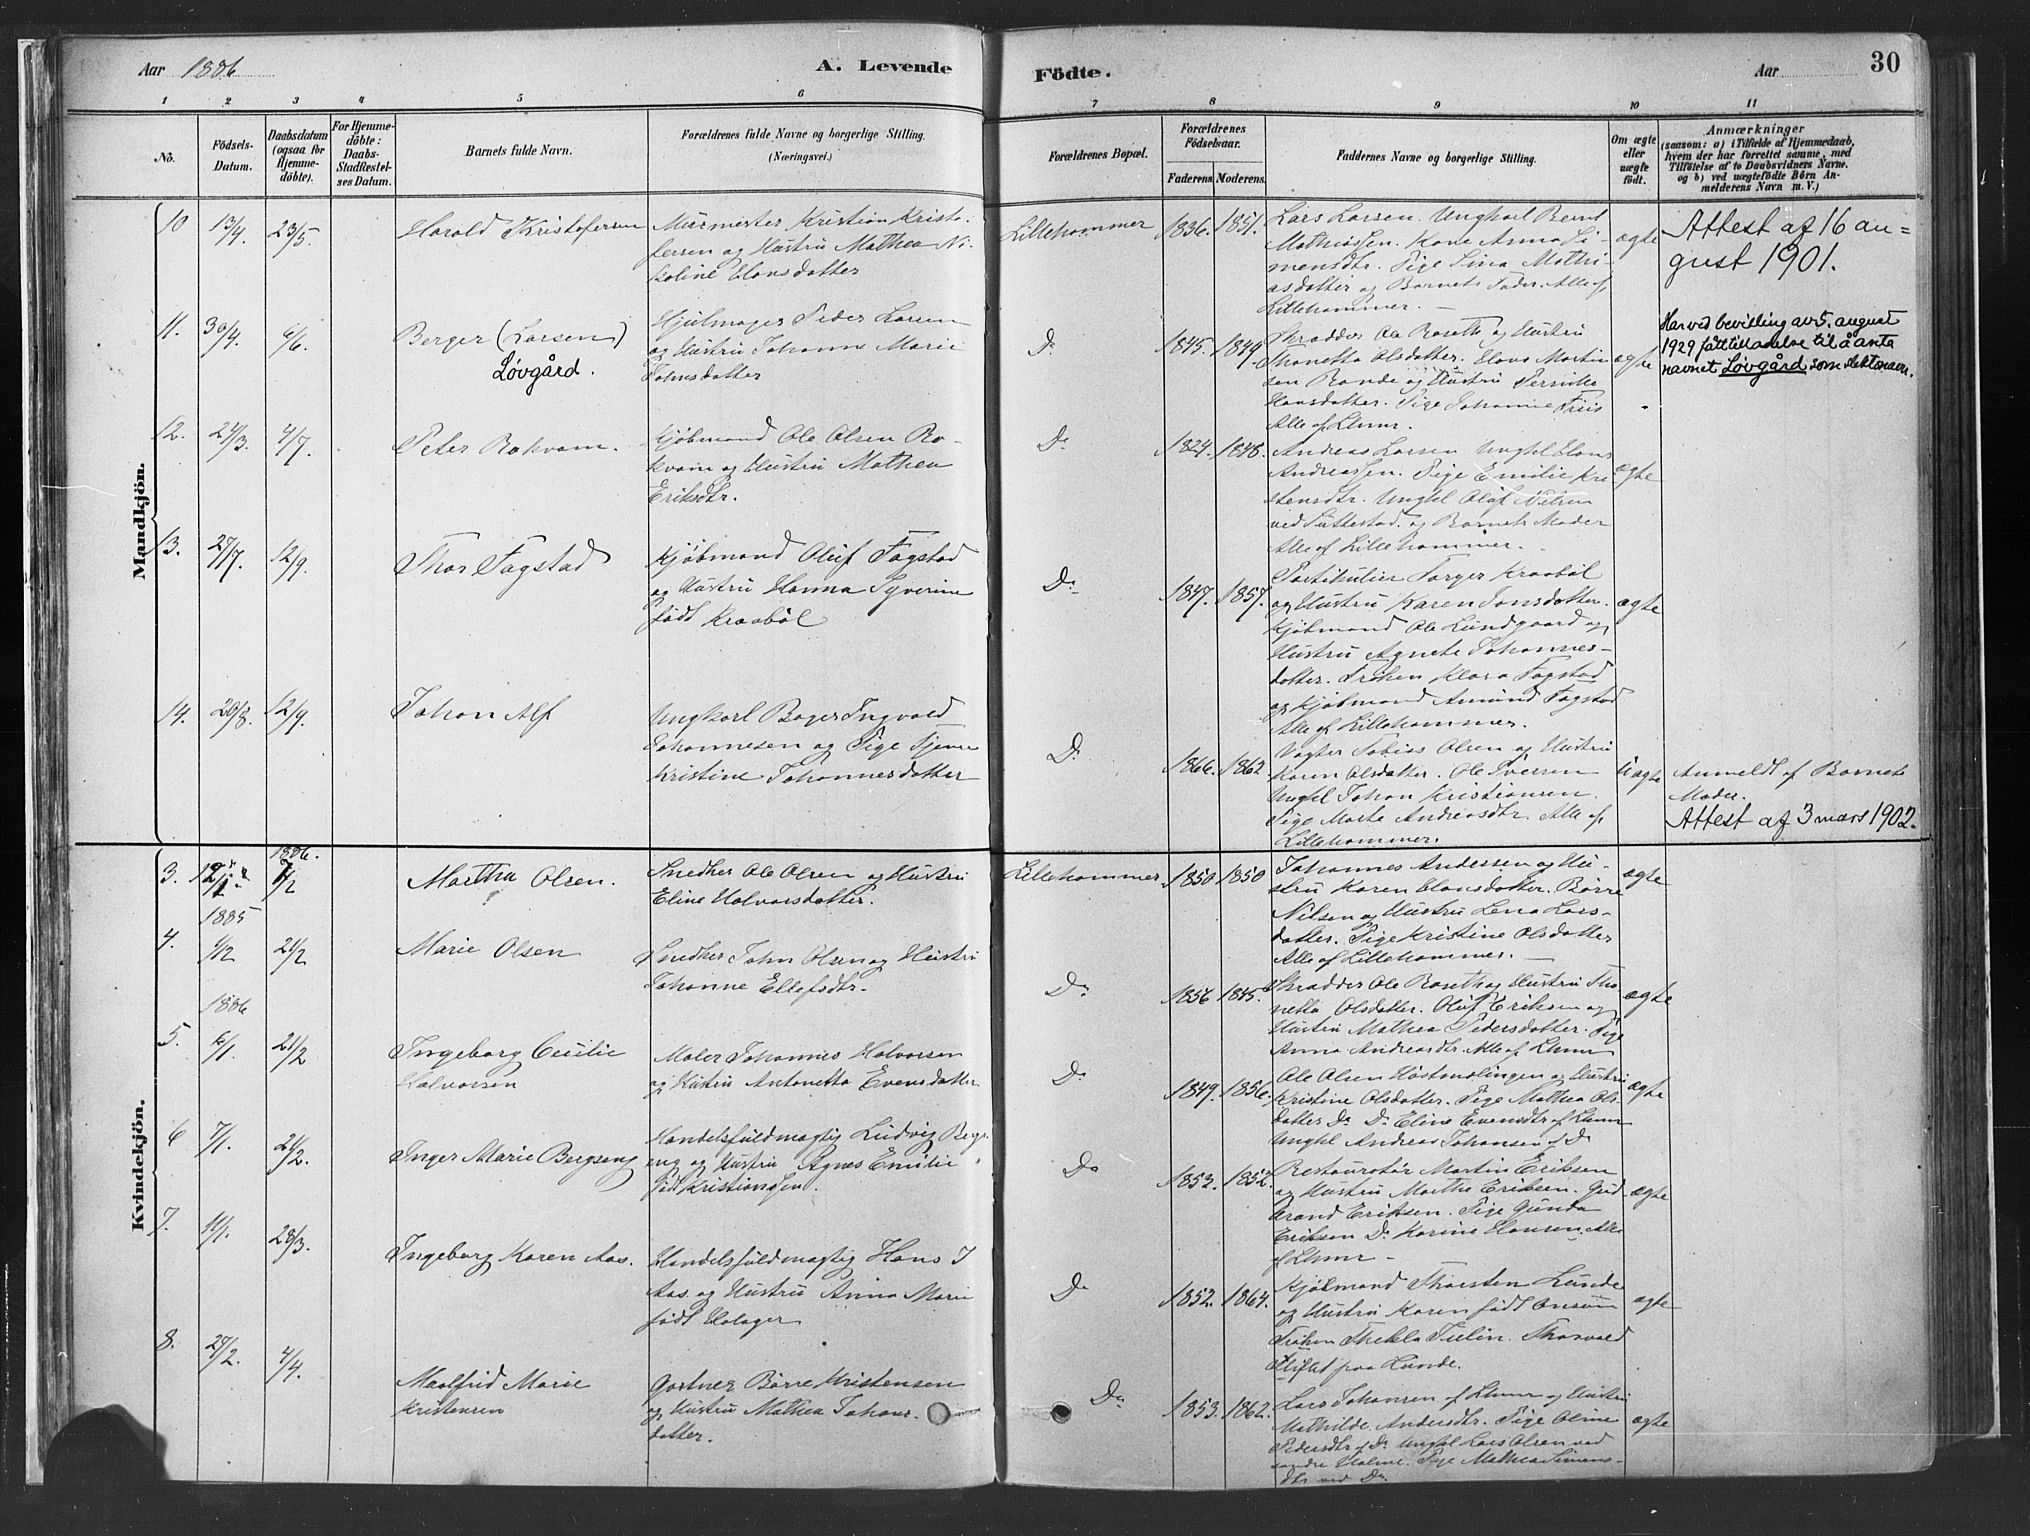 Aar 1886
A. Levende
Födte.
Aar
30
1 2 3 4 5 6 7 8 9 10 11
No.
Födsels-
Datum.
Daabsdatum
(ogsaa for
Hjemme-
döbte).
For Hjemme-
döbte:
Daabs-
Stadfæstel-
ses Datum.
Barnets fulde Navn.
Forældrenes fulde Navne og borgerlige Stilling.
(Næringsvei.)
Forældrenes Bopæl.
Forældrenes
Födselsaar.
Faderens. Moderens.
Faddernes Navne og borgerlige Stilling.
Om ægte
eller
uægte
födt.
Anmærkninger
(saasom: a) i Tilfælde af Hjemmedaab,
hvem der har forrettet samme, med
Tilföielse af to Daabsvidners Navne.
og b) ved uægtefödte Börn An-
melderens Navn m. V.)
Mandkjön.
10 13/4. 23/5. Harald Kristofersen
Murmester Kristian Kristo-
fersen og Hustru Mathea Ni-
koline Hansdatter
Lillehammer 1836. 1851.
Lars Larsen. Ungkarl Bernt
Mathiassen. Kone Anna Si-
mensdtr. Pige Sina Mathi-
asdatter og Barnets Fader. Alle af
Lillehammer. —
ægte
Attest af 16 au=
gust 1901.
11. 30/4. 6/6. Berger (Larsen)
Løvgård.
Hjulmager Peder Larsen
og Hustru Johanne Marie
Johnsdatter
Do 1845. 1849.
Skrædder Ole Roseth og Hustru
Thonetta Olsdatter. Hans Martin
sen Rande og Hustru Pernille
Hansdatter. Pige Johanne Friis
Alle af Lhmr.
ægte
Har ved bevilling av 5. august
1929 fått tilladelse til å anta
navnet Løvgård som slektsnavn.
12. 24/3. 4/7. Peter Rokvam.
Kjøbmand Ole Olsen Ro-
kvam og Hustru Mathea
Eriksdtr.
Do 1824. 1848.
Andreas Larsen Ungkl Hans
Andreassen. Pige Emilie Kri
stensdtr. Ungkl Oluf Nilsen
ved Suttestad. og Barnets Moder
Alle af Lillehammer. —
ægte
13. 27/7. 12/9. Thor Fagstad
Kjøbmand Oluf Fagstad
og Hustru Hanna Syverine
født Kraabøl
Do 1847. 1857.
Partikulier Torger Kraabøl
og Hustru Karen Jonsdatter.
Kjøbmand Ole Lundgaard og
Hustru Agnete Johannes-
datter. Frøken Klara Fagstad
og Kjøbmand Amund Fagstad
Alle af Lillehammer.
ægte
14. 20/8. 12/9. Johan Alf
Ungkarl Bager Ingvald
Johannesen og Pige Tjener
Kristine Johannesdatter
Do 1866. 1862
Vægter Tobias Olsen og Hustru
Karen Olsdatter. Ole Iversen
Ungkl Johan Kristiansen.
Pige Marte Andreasdtr. Alle af
Lillehammer.
Uægte
Anmeldt af Barnets
Moder.
Attest af 3 mars 1902.
Kvindekjön.
3. 1886.
7/2 Martha Olsen.
Snedker Ole Olsen og Hustru
Eline Halvorsdatter.
Lillehammer. 1850 1850
Johannes Andersen og Hu-
stru Karen Hansdatter. Børre
Nilsen og Hustru Lena Lars-
datter. Pige Kristine Olsdatter
Alle af Lillehammer. —
ægte
1885
4. 21/2 Marie Olsen
Snedker John Olsen og Hustru
Johanne Ellefsdtr.
Do 1856 1845.
Skrædder Ole Roseth og Hustru Tho
netta Olsdatter. Oluf Eriksen og
Hustru Mathea Pedersdatter. Pige
Anna Andreasdtr. Alle af Lhmr
ægte
1886
5. 6/1 21/2 Ingeborg Cecilie
Halvorsen
Maler Johannes Halvorsen
og Hustru Antonette Evensdatter
Do 1849. 1856.
Ole Olsen Høstmælingen og Hustru
Kristine Olsdatter. Pige Mathea Ols-
datter Do Do Eline Evensdtr af Lhmr
Ungkl Andreas Johansen af Do
ægte
6 7/1. 21/2. Inger Marie Bergseng
Handelsfuldmægtig Ludvig Bergs
eng og Hustru Agnes Emilie
født Kristiansen.
Do 1853. 1852.
Restauratør Martin Eriksen
og Hustru Marthe Eriksen. Gud
brand Eriksen. Pige Gunda
Eriksen Do Karine Hansen. Alle
af Lhmr —
ægte
7. 11/1. 28/3. Ingeborg Karen Aas.
Handelsfuldmægtig Hans J
Aas. og Hustru Anna Marie
født Holager
Do 1852. 1864.
Kjøbmand Thorsten Lunde
og Hustru Karen født Onsum
Frøken Thekla Tulin. Thorvald
Kliftet paa Lunde.
ægte
8. 27/2. 4/4. Maalfrid Marie
Kristensen
Gartner Børre Kristensen
og Hustru Mathea Johans-
datter.
Do 1853. 1862.
Lars Johansen af Lhmr og Hustru
Mathilde Andersdtr. Pige Oline
Pedersdtr af Do Ungkl Lars Olsen ved
søndre Holme. Pige Mathea Simens-
dtr ved Do
ægte